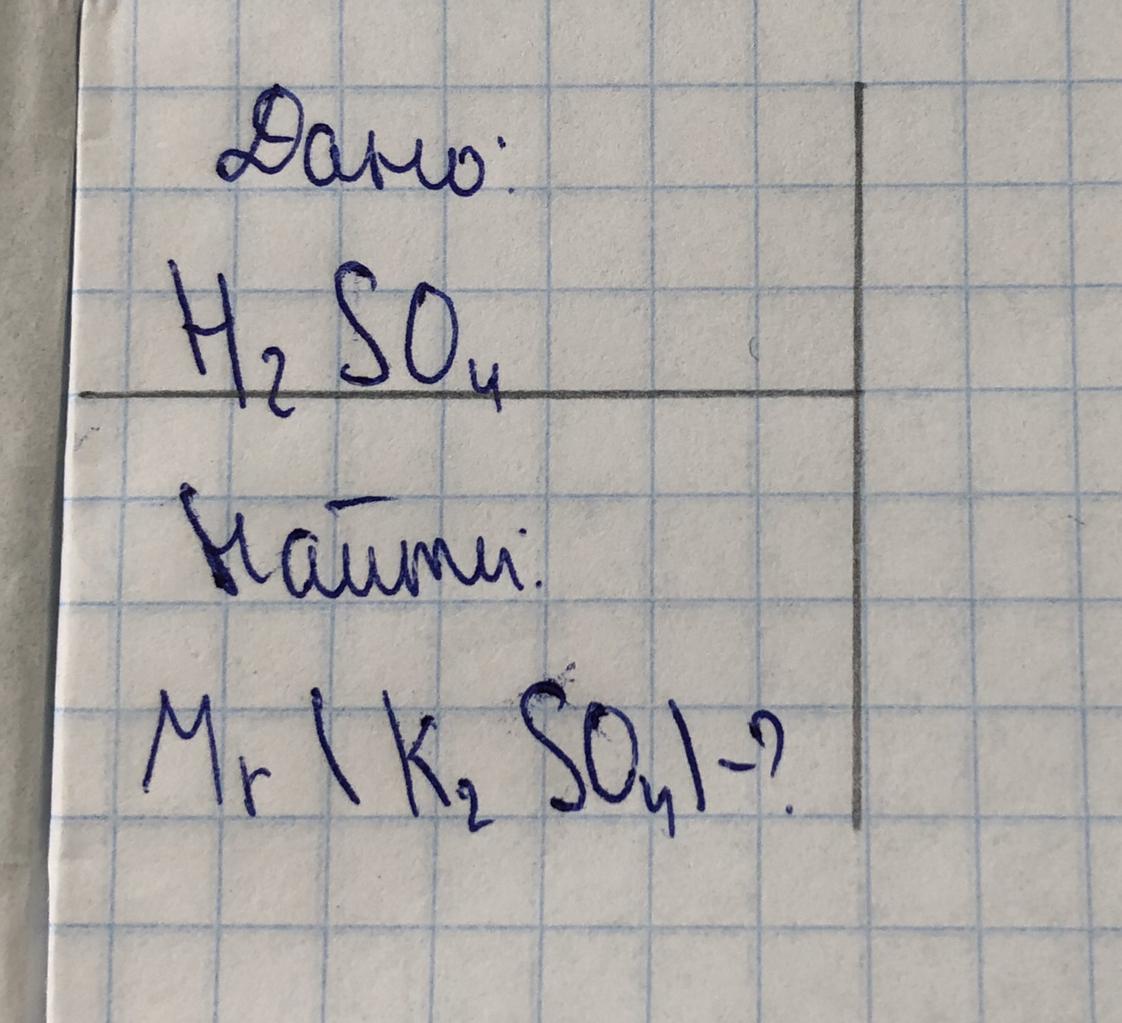 Дано:
H₂SO₄
Найти:
Mr (K₂SO₄) -?